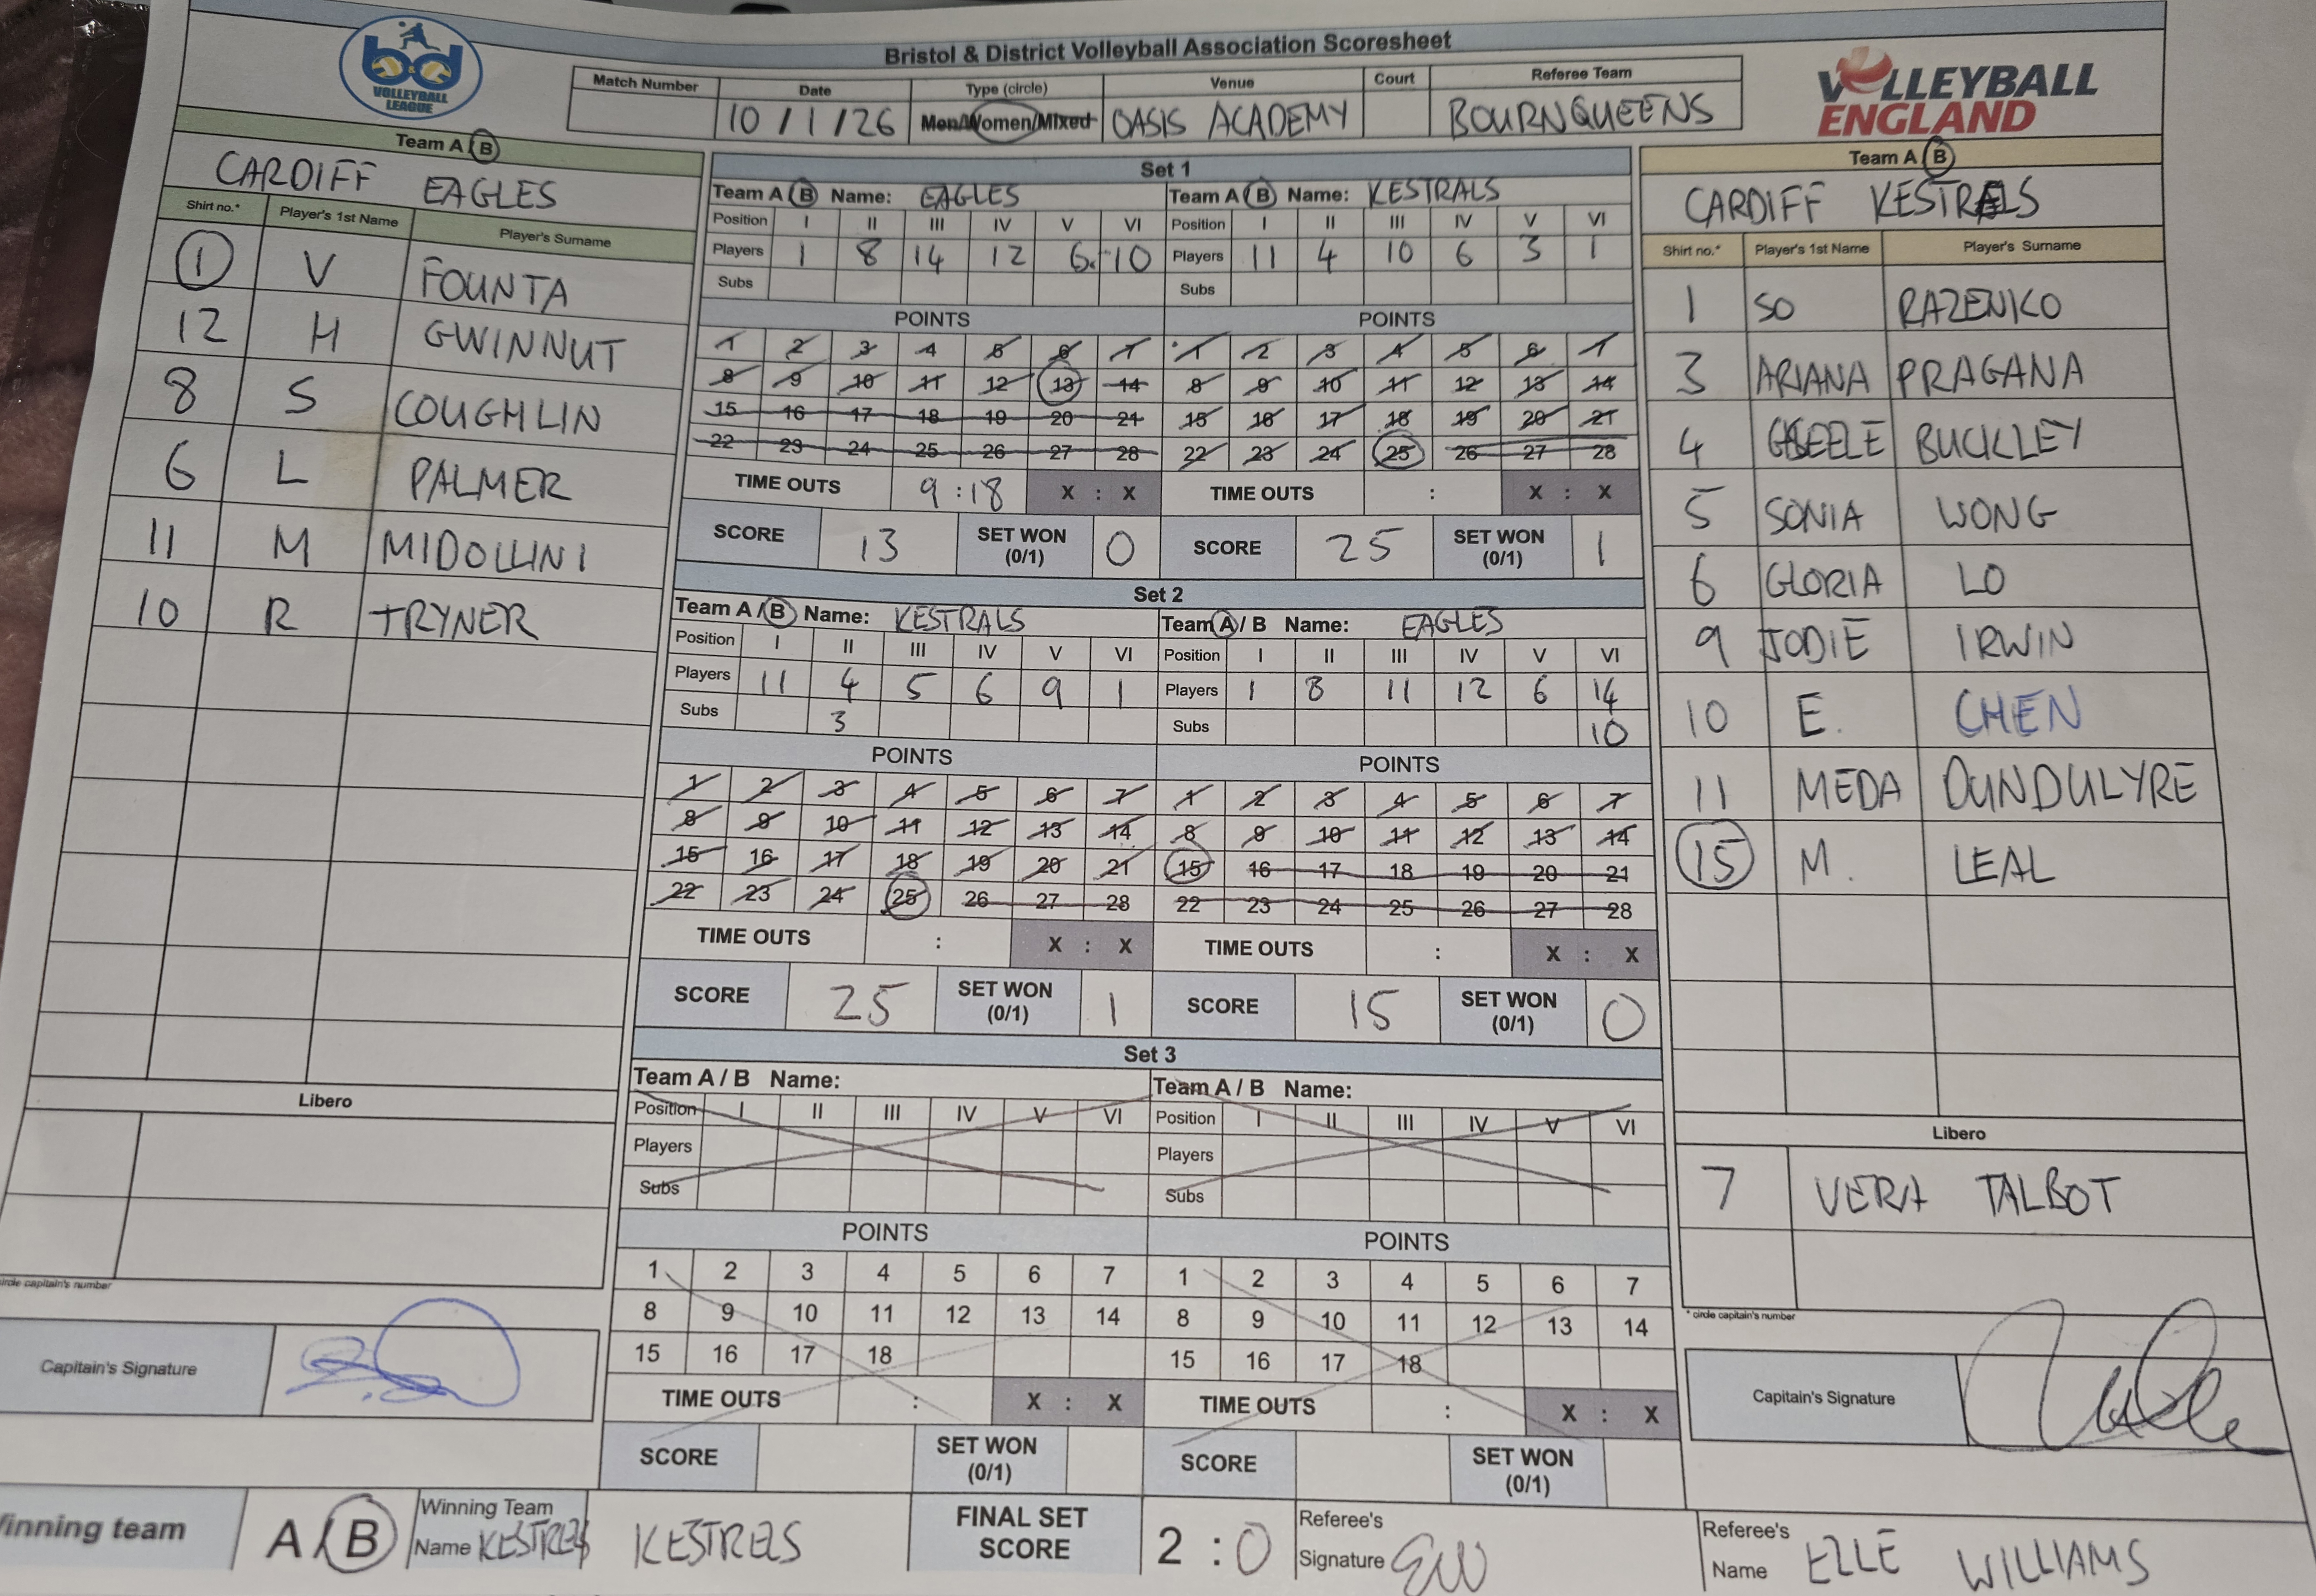 Bristol & District Volleyball Association Scoresheet
bd
VOLLEYBALL
LEAGUE
VOLLEYBALL
ENGLAND
Match Number Date Type (circle) Venue Court Referee Team
10/1/26 Men/Women/Mixed OASIS ACADEMY BOURNQUEENS
Team A/B
CARDIFF EAGLES
Shirt no.* Player's 1st Name Player's Surname
1 V FOUNTA
12 H GWINNUT
8 S COUGHLIN
6 L PALMER
11 M MIDOLLINI
10 R TRYNER
Libero
circle captain's number
Capitain's Signature
Set 1
Team A/B Name: EAGLES
Position I II III IV V VI
Players 1 8 14 12 6 10
Subs
POINTS
1 2 3 4 5 6 7
8 9 10 11 12 13 14
15 16 17 18 19 20 21
22 23 24 25 26 27 28
TIME OUTS 9:18 X : X
SCORE 13 SET WON (0/1) 0
Team A/B Name: KESTRALS
Position I II III IV V VI
Players 11 4 10 6 3 1
Subs
POINTS
1 2 3 4 5 6 7
8 9 10 11 12 13 14
15 16 17 18 19 20 21
22 23 24 25 26 27 28
TIME OUTS : X : X
SCORE 25 SET WON (0/1) 1
Set 2
Team A/B Name: KESTRALS
Position I II III IV V VI
Players 11 4 5 6 9 1
Subs 3
POINTS
1 2 3 4 5 6 7
8 9 10 11 12 13 14
15 16 17 18 19 20 21
22 23 24 25 26 27 28
TIME OUTS : X : X
SCORE 25 SET WON (0/1) 1
Team A/B Name: EAGLES
Position I II III IV V VI
Players 1 8 11 12 6 14
Subs 10
POINTS
1 2 3 4 5 6 7
8 9 10 11 12 13 14
15 16 17 18 19 20 21
22 23 24 25 26 27 28
TIME OUTS : X : X
SCORE 15 SET WON (0/1) 0
Set 3
Team A / B Name:
Position I II III IV V VI
Players
Subs
POINTS
1 2 3 4 5 6 7
8 9 10 11 12 13 14
15 16 17 18
TIME OUTS : X : X
SCORE SET WON (0/1)
Team A / B Name:
Position I II III IV V VI
Players
Subs
POINTS
1 2 3 4 5 6 7
8 9 10 11 12 13 14
15 16 17 18
TIME OUTS : X : X
SCORE SET WON (0/1)
Team A/B
CARDIFF KESTRALS
Shirt no.* Player's 1st Name Player's Surname
1 SO RAZENKO
3 ARIANA PRAGANA
4 BUCKLEY
5 SONIA WONG
6 GLORIA LO
9 JODIE IRWIN
10 E. CHEN
11 MEDA DUNDULYRE
15 M. LEAL
Libero
7 VERA TALBOT
* circle captain's number
Capitain's Signature
Winning team A/B Winning Team Name KESTRELS KESTRELS
FINAL SET SCORE 2 : 0
Referee's Signature EW
Referee's Name ELLE WILLIAMS